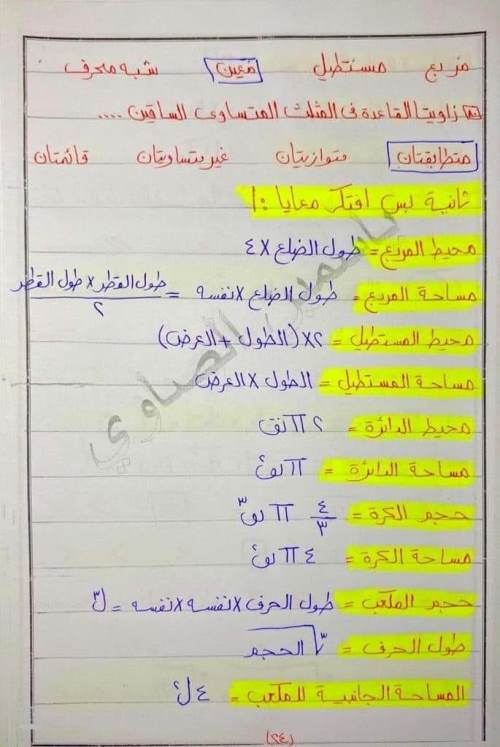 مربع مستطيل معين شبه منحرف
زاويتا القاعدة فى المثلث المتساوى الساقين ....
متطابقتان متوازيتان غير متساويتان قائمتان
ثانية بس افتكر معايا :ا
محيط المربع = طول الضلع × ٤
مساحة المربع = طول الضلع × نفسه = طول القطر × طول القطر / ٢
محيط المستطيل = ٢ × (الطول + العرض)
مساحة المستطيل = الطول × العرض
محيط الدائرة = ٢ π نق
مساحة الدائرة = π نق²
حجم الكرة = ٤/٣ π نق³
مساحة الكرة = ٤ π نق²
حجم المكعب = طول الحرف × نفسه × نفسه = ل³
طول الحرف = ∛الحجم
المساحة الجانبية للمكعب = ٤ ل²
(٢٤)
ياسمين الصاوي